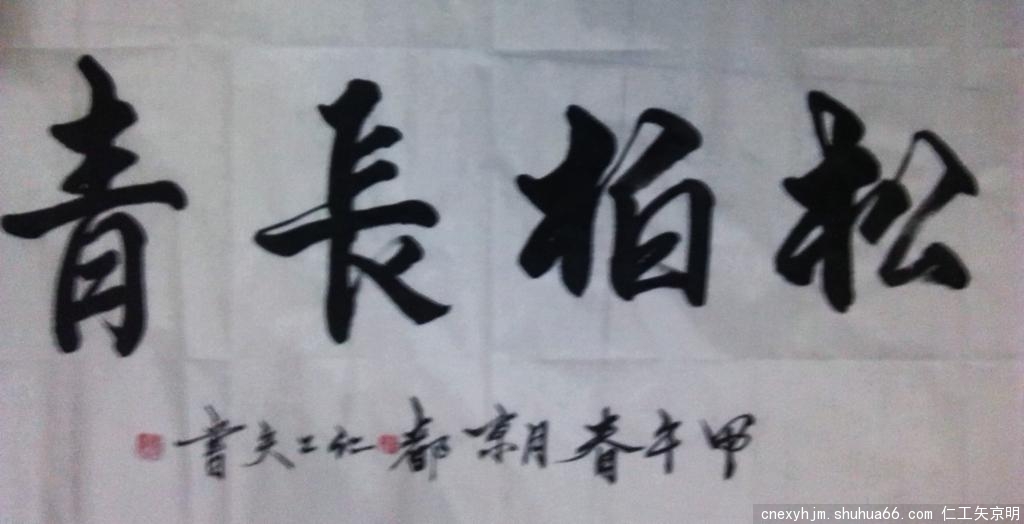 松柏長青
甲午春月京都仁工矢書
cnexyhjm.shuhua66.com 仁工矢京明